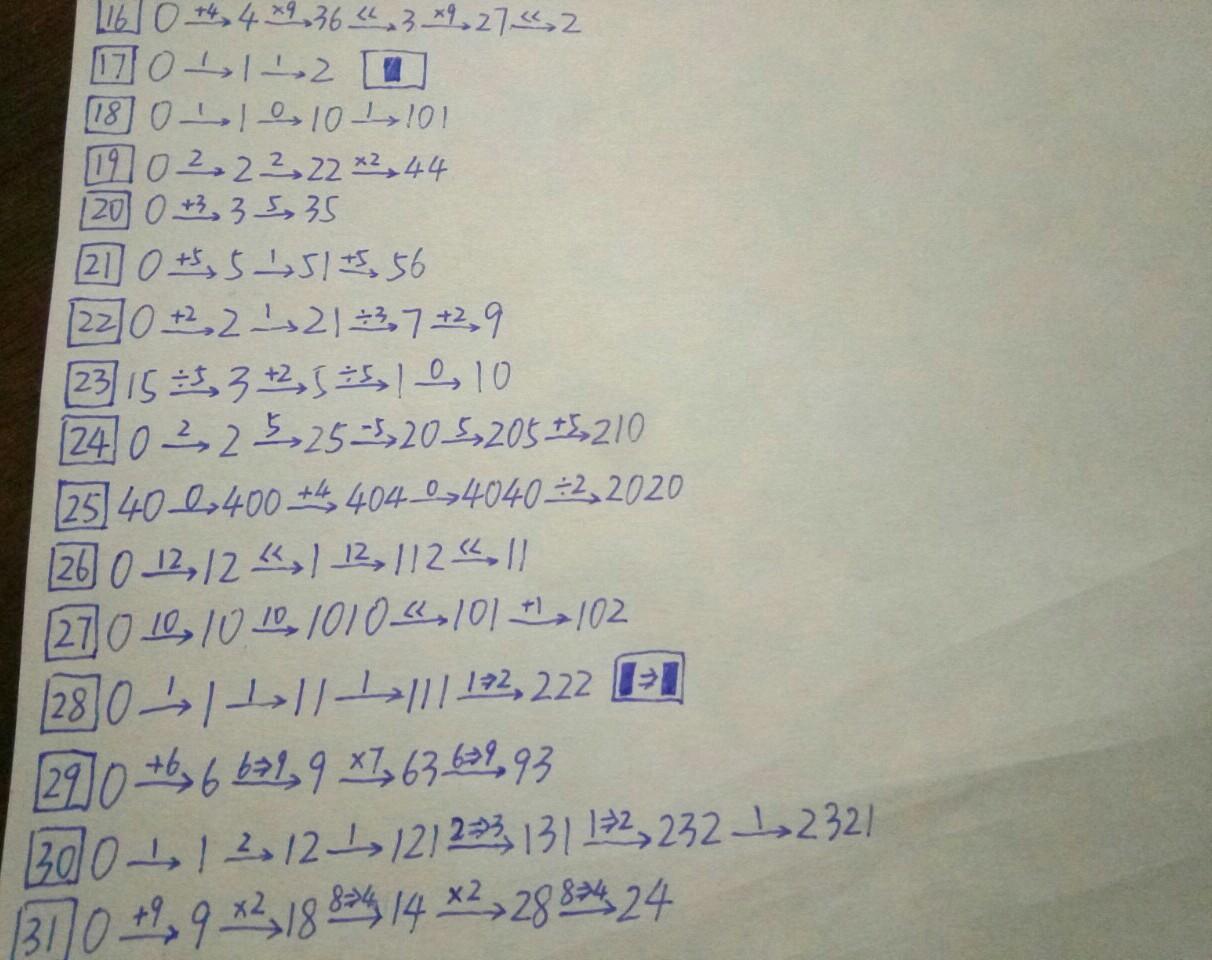 16 0 +4→ 4 ×9→ 36 <<→ 3 ×9→ 27 <<→ 2
17 0 1→ 1 1→ 2
18 0 1→ 1 0→ 10 1→ 101
19 0 2→ 2 2→ 22 ×2→ 44
20 0 +3→ 3 5→ 35
21 0 +5→ 5 1→ 51 +5→ 56
22 0 +2→ 2 1→ 21 ÷3→ 7 +2→ 9
23 15 ÷5→ 3 +2→ 5 ÷5→ 1 0→ 10
24 0 2→ 2 5→ 25 -5→ 20 5→ 205 +5→ 210
25 40 0→ 400 +4→ 404 0→ 4040 ÷2→ 2020
26 0 12→ 12 <<→ 1 12→ 112 <<→ 11
27 0 10→ 10 10→ 1010 <<→ 101 +1→ 102
28 0 1→ 1 1→ 11 1→ 111 1⇒2→ 222 ▮⇒▮
29 0 +6→ 6 6⇒9→ 9 ×7→ 63 6⇒9→ 93
30 0 1→ 1 2→ 12 1→ 121 2⇒3→ 131 1⇒2→ 232 1→ 2321
31 0 +9→ 9 ×2→ 18 8⇒4→ 14 ×2→ 28 8⇒4→ 24